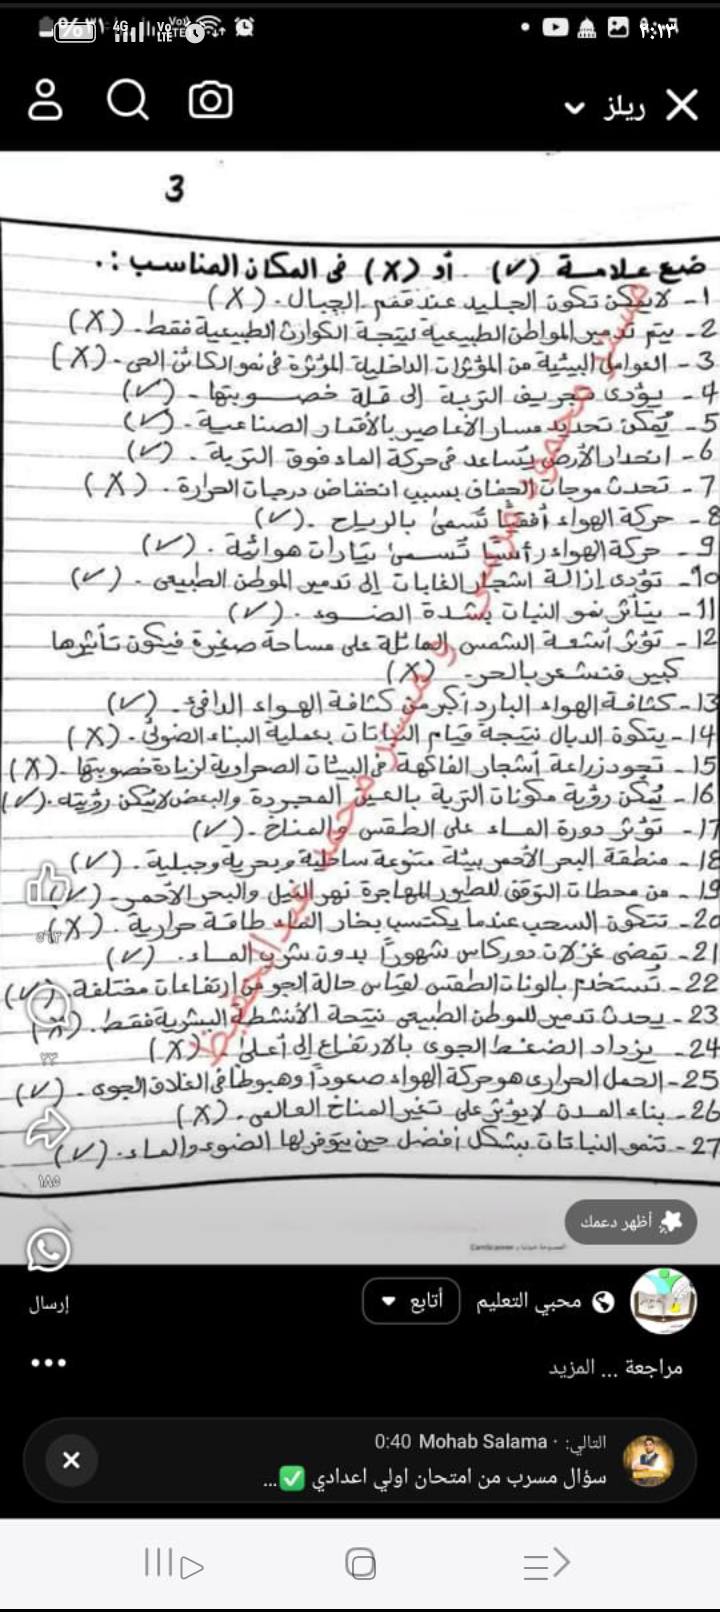 ٩:١٣
4G
ريلز
3
ضع علامة (✓) أو (X) في المكان المناسب :.
1- لا يمكن تكون الجليد عند قمم الجبال. (X)
2- يتم تدمير المواطن الطبيعية نتيجة الكوارث الطبيعية فقط. (X)
3- العوامل البيئية من المؤثرات الداخلية المؤثرة في نمو الكائن الحي. (X)
4- يؤدى تجريف التربة إلى قلة خصوبتها. (✓)
5- يُمكن تحديد مسار الأعاصير بالأقمار الصناعية. (✓)
6- انحدار الأرض يساعد في حركة الماء فوق التربة. (✓)
7- تحدث موجات الجفاف بسبب انخفاض درجات الحرارة. (X)
8- حركة الهواء أفقيًا تُسمى بالرياح. (✓)
9- حركة الهواء رأسيًا تُسمى بتيارات هوائية. (✓)
10- تؤدى إزالة اشجار الغابات إلى تدمير الموطن الطبيعى. (✓)
11- يتأثر نمو النبات بشدة الضوء. (✓)
12- تؤثر أشعة الشمس المائلة على مساحة صغيرة فيكون تأثيرها
كبير فتشعر بالحر. (X)
13- كثافة الهواء البارد أكبر من كثافة الهواء الدافئ. (✓)
14- يتكون الدبال نتيجة قيام النباتات بعملية البناء الضوئى. (X)
15- تجود زراعة أشجار الفاكهة في البيئات الصحراوية لزيادة خصوبتها. (X)
16- يُمكن رؤية مكونات التربة بالعين المجردة والبعض لا يمكن رؤيته. (✓)
17- تؤثر دورة الماء على الطقس والمناخ. (✓)
18- منطقة البحر الأحمر بيئة متنوعة ساحلية وبحرية وجبلية. (✓)
19- من محطات التوقف للطيور المهاجرة نهر النيل والبحر الأحمر. (✓)
20- تتكون السحب عندما يكتسب بخار الماء طاقة حرارية. (X)
21- تمضى غزلان دوركاس شهورًا بدون شرب الماء. (✓)
22- تُستخدم بالونات الطقس لقياس حالة الجو من ارتفاعات مختلفة. (✓)
23- يحدث تدمير للموطن الطبيعى نتيجة الأنشطة البشرية فقط. (X)
24- يزداد الضغط الجوى بالارتفاع إلى أعلى. (X)
25- الحمل الحرارى هو حركة الهواء صعودًا وهبوطًا في الغلاف الجوى. (✓)
26- بناء المدن لا يؤثر على تغير المناخ العالمى. (X)
27- تنمو النباتات بشكل أفضل حين يتوفر لها الضوء والماء. (✓)
١٨٥
أظهر دعمك
CamScanner
محبي التعليم
أتابع
إرسال
مراجعة ... المزيد
التالي: · Mohab Salama 0:40
سؤال مسرب من امتحان اولي اعدادي ✅...